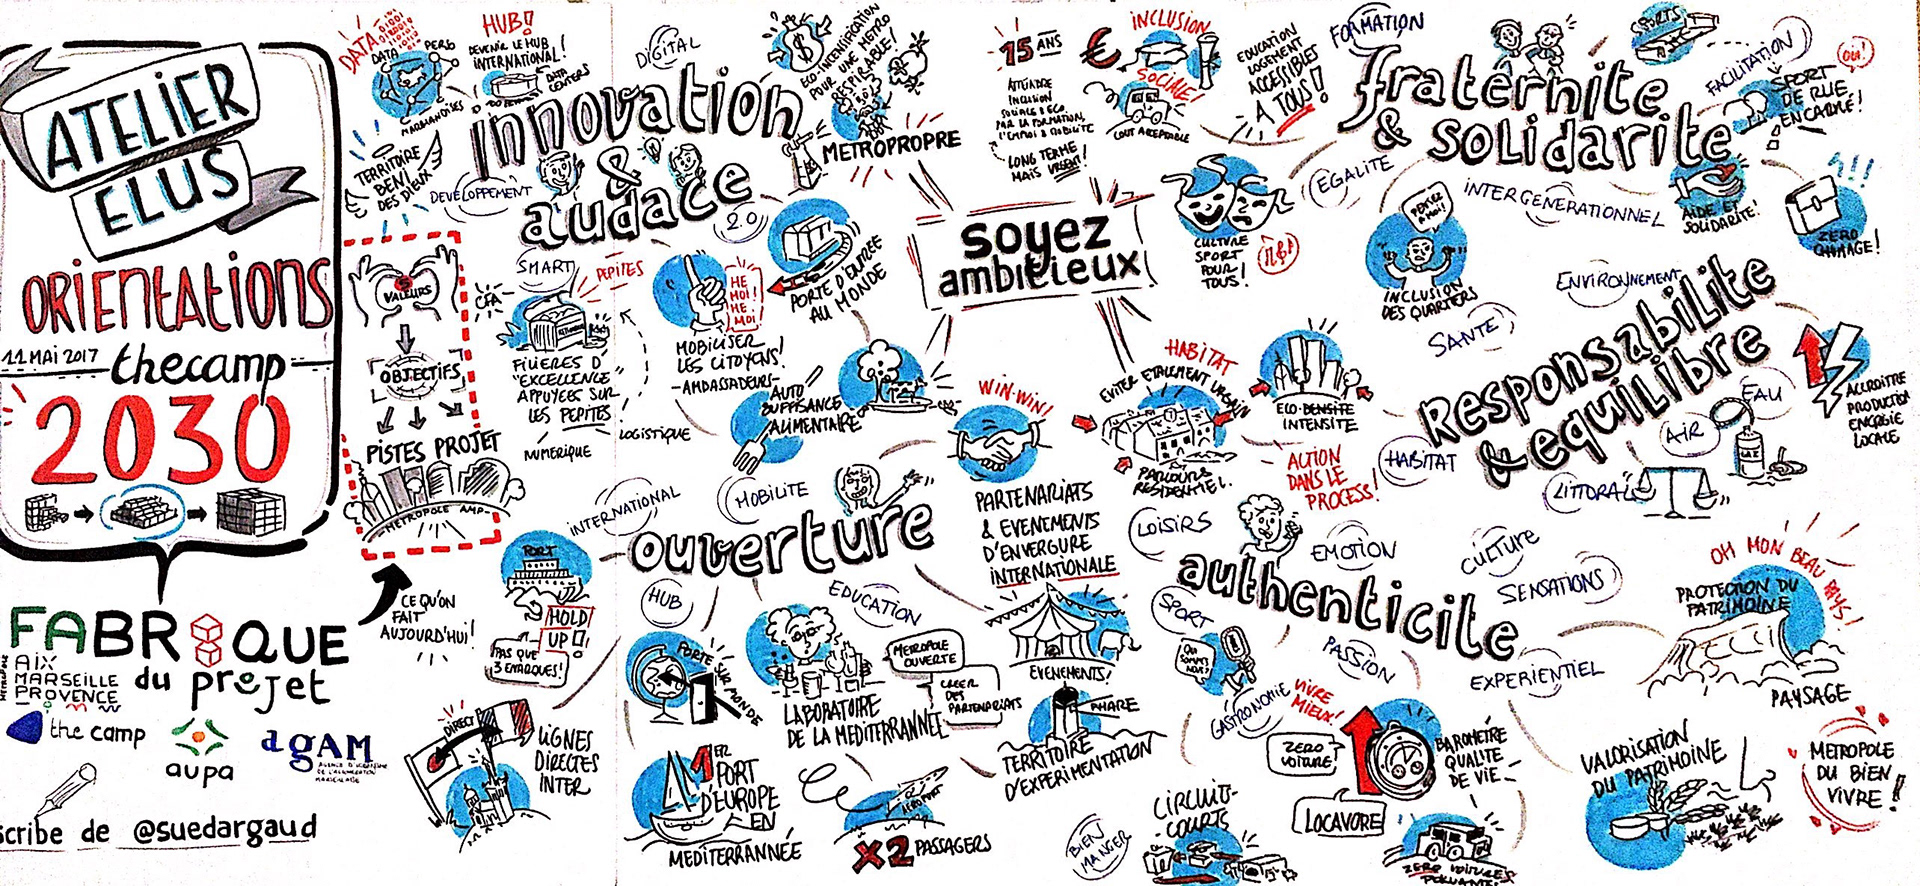 ATELIER
ELUS
ORIENTATIONS
11 MAI 2017 thecamp
2030
FABRIQUE
du projet
AIX
MARSEILLE
PROVENCE
the camp
aupa
agAM
scribe de @suedargaud
5
VALEURS
OBJECTIFS
PISTES PROJET
METROPOLE AMP
CE QU'ON
FAIT
AUJOURD'HUI!
DATA
DATA
PERS
MARCHANDISES
HUB!
DEVENIR LE HUB
INTERNATIONAL!
DATA
CENTERS
TERRITOIRE
BENI
DES DIEUX
DIGITAL
innovation
&
audace
DEVELOPPEMENT
2.0
SMART
PEPITES
CFA
FILIERES D'
"EXCELLENCE"
APPUYEES SUR
LES PEPITES
NUMERIQUE
LOGISTIQUE
HE
MOI!
HE
MOI
MOBILISER
LES CITOYENS!
-AMBASSADEURS-
AUTO
SUFFISANCE
ALIMENTAIRE
PORTE D'ENTREE
AU MONDE
ECO-INCENTIFICATION
POUR UNE METRO
RESPIRABLE!
METROPROPRE
soyez
ambitieux
15 ANS
ATTEINDRE
INCLUSION
SOCIALE & ECO.
PAR LA FORMATION,
L'EMPLOI & MOBILITE
LONG TERME
MAIS URGENT!
€
INCLUSION
SOCIALE!
COUT ACCEPTABLE
EDUCATION
LOGEMENT
ACCESSIBLES
A TOUS!
FORMATION
fraternite
& solidarite
SPORTS
FACILITATION
OUI!
SPORT
DE RUE
ENCADRÉ!
EGALITE
INTERGENERATIONNEL
CULTURE
SPORT
POUR
TOUS!
PENSEZ
A MOI!
INCLUSION
DES QUARTIERS
AIDE ET
SOLIDARITE!
ZERO
CHOMAGE!
ENVIRONNEMENT
SANTE
Responsabilite
& equilibre
EAU
AIR
LITTORAL
HABITAT
ACCROITRE
PRODUCTION
ENERGIE
LOCALE
HABITAT
EVITER ETALEMENT URBAIN
PARCOURS
RESIDENTIEL
ECO-DENSITE
INTENSITE
ACTION
DANS LE
PROCESS!
WIN-WIN!
PARTENARIATS
& EVENEMENTS
D'ENVERGURE
INTERNATIONALE
INTERNATIONAL
MOBILITE
ouverture
HUB
EDUCATION
PORT
HOLD
UP!
PAS QUE
3 ENARQUES!
DIRECT
LIGNES
DIRECTES
INTER
PORTE SUR MONDE
LABORATOIRE
DE LA MEDITERRANNEE
METROPOLE
OUVERTE
CREER
DES
PARTENARIATS
EVENEMENTS!
PHARE
TERRITOIRE
D'EXPERIMENTATION
1ER
PORT
D'EUROPE
EN
MEDITERRANNÉE
AEROPORT
X2 PASSAGERS
LOISIRS
EMOTION
CULTURE
SENSATIONS
authenticite
SPORT
PASSION
EXPERIENTIEL
QUI
SOMMES
NOUS?
GASTRONOMIE
VIVRE
MIEUX!
ZERO
VOITURE!
LOCAVORE
BAROMÈTRE
QUALITE
DE VIE
BIEN
MANGER
CIRCUITS-
COURTS
ZERO VOITURES
POLUANTE!
OH MON BEAU PAYS!
PROTECTION DU
PATRIMOINE
PAYSAGE
VALORISATION
DU PATRIMOINE
METROPOLE
DU BIEN
VIVRE!